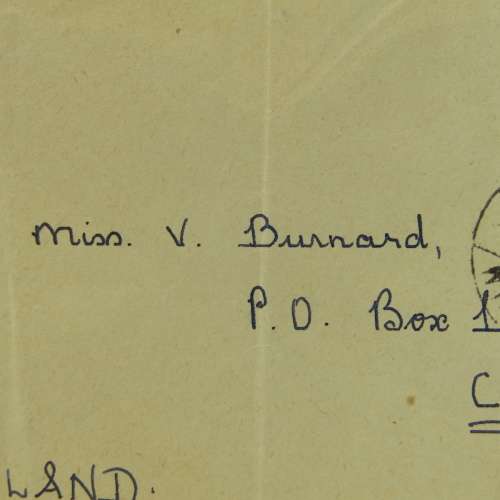 Miss. V. Burnard,
P.O. Box 1
C
LAND.